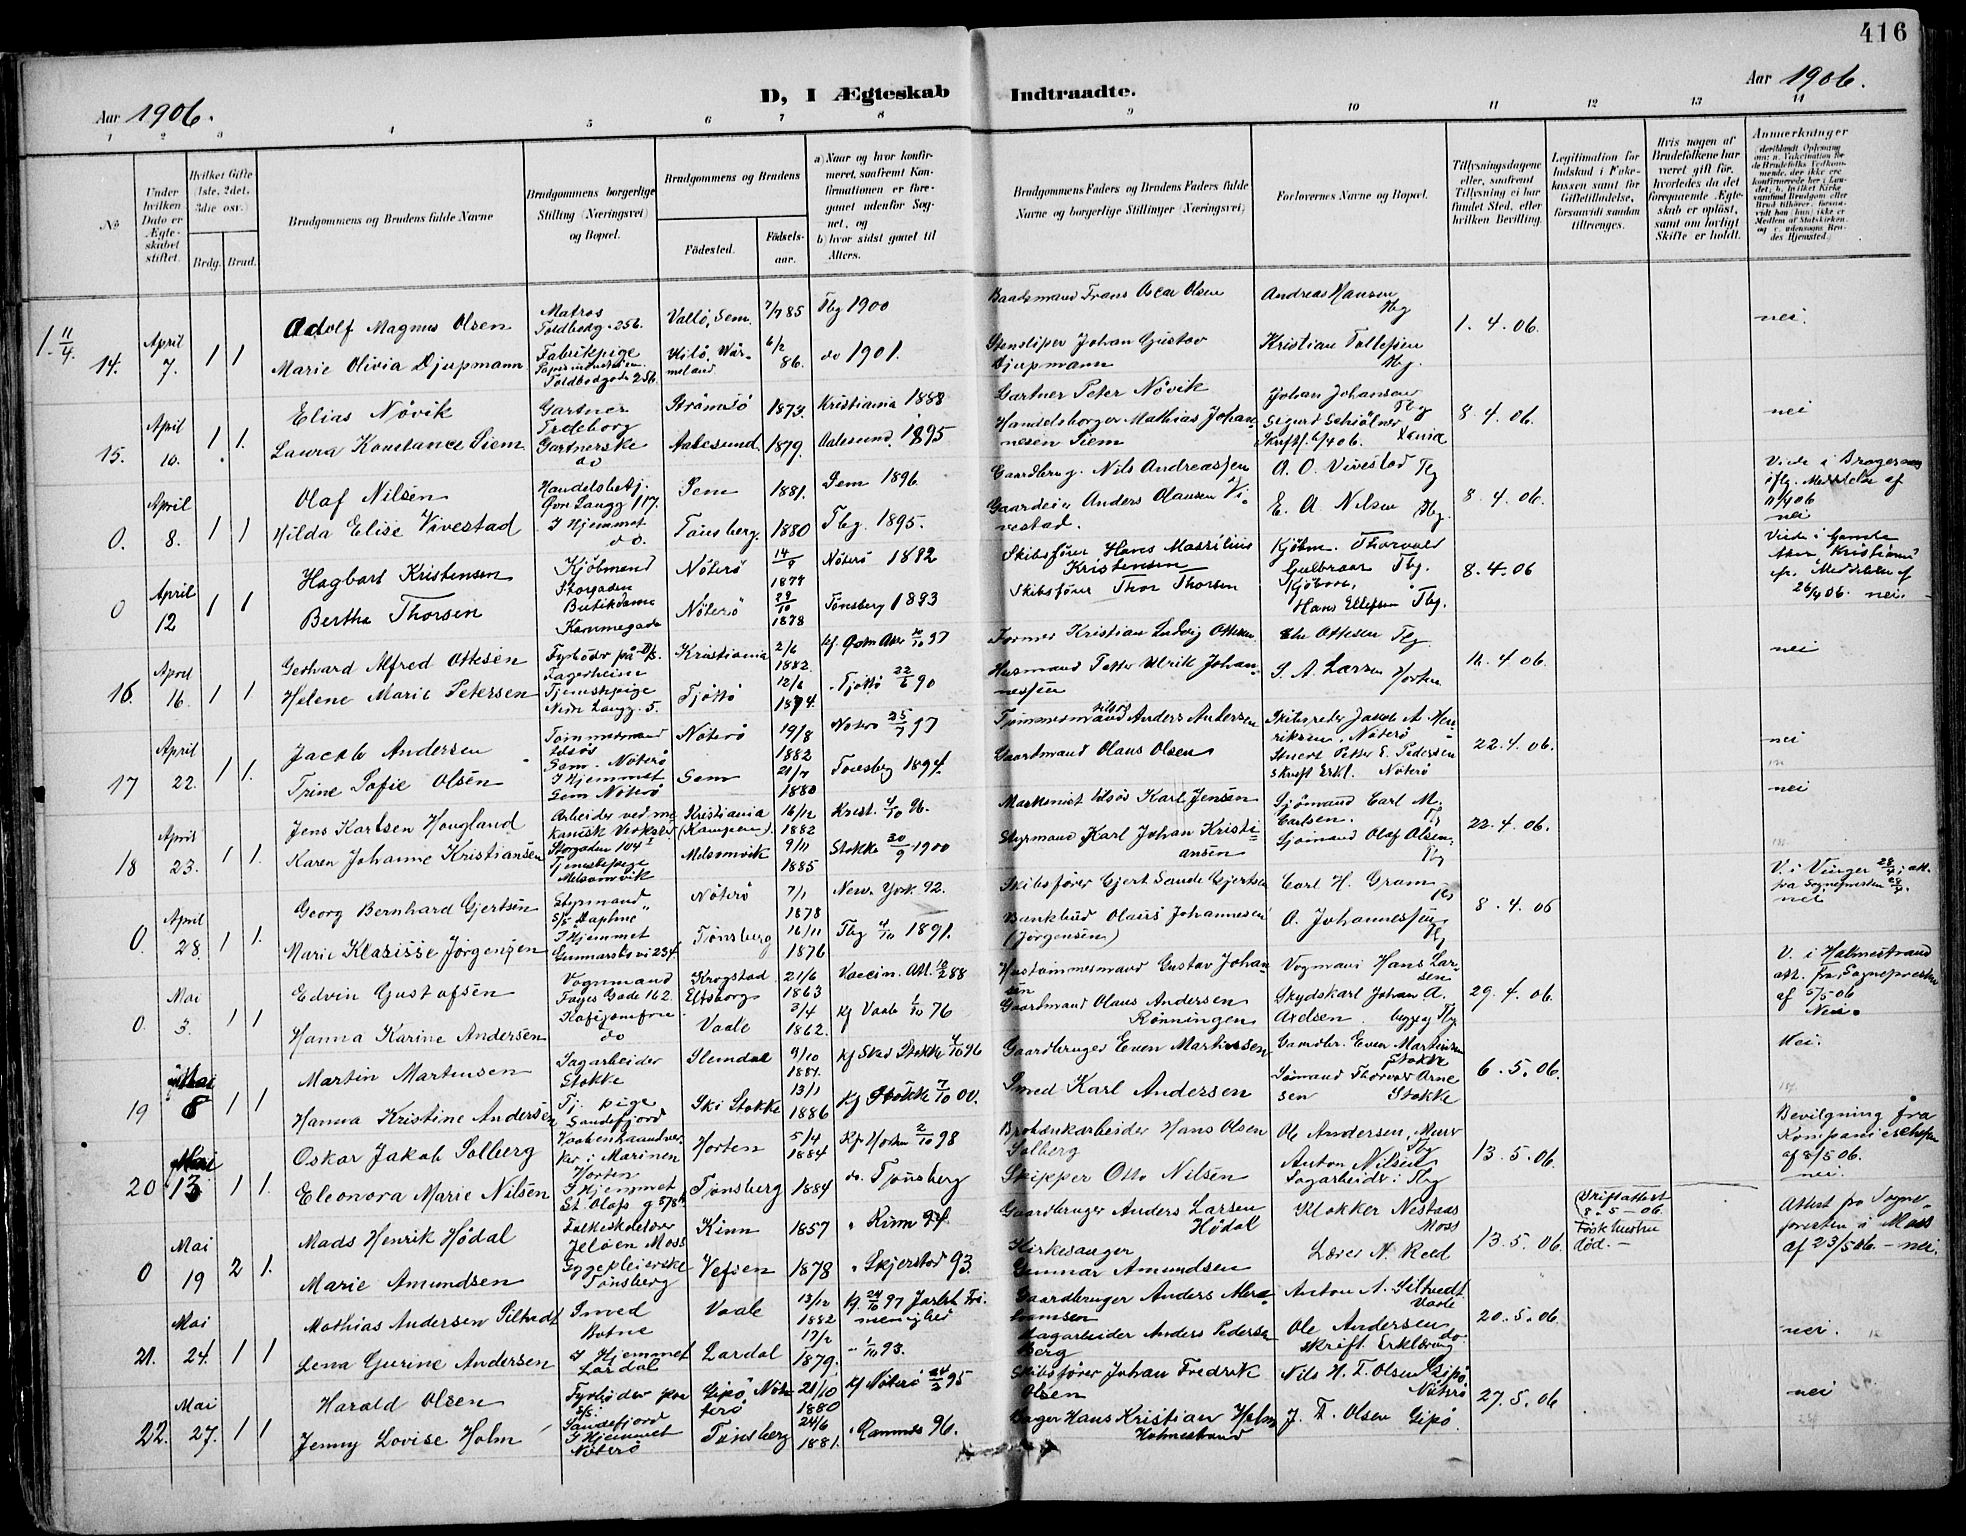 416
Aar 1906.
D, I Ægteskab Indtraadte.
Aar 1906.
1 2 3 4 5 6 7 8 9 10 11 12 13 14
No
Under hvilken Dato er Ægteskabet stiftet.
Hvilket Gifte (1ste, 2det, 3die osv.)
Brdg. Brud.
Brudgommens og Brudens fulde Navne
Brudgommens borgerlige Stilling (Næringsvei) og Bopæl.
Brudgommens og Brudens
Fødested.
Fødselsaar.
a) Naar og hvor konfirmeret, saafremt Konfirmationen er foregaaet udenfor Sognet, og
b) hvor sidst gaaet til Alters.
Brudgommens Faders og Brudens Faders fulde Navne og borgerlige Stillinger (Næringsvei)
Forlovernes Navne og Bopæl.
Tillysningsdagene eller, saafremt Tillysning ei har fundet Sted, efter hvilken Bevilling.
Legitimation for Indskud i Enkekassen samt for Giftetilladelse, forsaavidt saadan tiltrænges.
Hvis nogen af Brudefolkene har været gift før, hvorledes da det foregaaende Ægteskab er opløst, samt om lovligt Skifte er holdt.
Anmerkninger
1. 11/4
14. April 7. 1 1
Adolf Magnus Olsen Matros Toldbodg. 256. Vallö, Sem. 7/7 85 Tbg 1900 Baadsmand Frans Oscar Olsen Andreas Hansen Tbg 1. 4. 06. nei.
Marie Olivia Djupmann Fabrikpige Papirindustrien Toldbodgade 256. Kilö, Wärmeland 6/2 86. do 1901. Stensliper Johan Gustav Djupmann Kristian Tollefsen Tbg.
15. April 10. 1 1.
Elias Növik Gartner Tredeborg Strömsö 1873. Kristiania 1888 Gartner Peter Növik Johan Johansen Tbg 8. 4. 06. nei
Laura Konstance Siem Gartnerske do Aalesund 1879. Aalesund. 1895 Handelsborger Mathias Johannesen Siem Sigurd Schiölner Xania
0. April 8. 1 1
Olaf Nilsen Handelsbetj. Övre Langg 117. Sem 1881. Sem 1896. Gaardbrug. Nils Andreassen A. O. Vivestad Tbg 8. 4. 06. Viede i Bragernes iflg. Meddelse af 11/4 06 nei
Hilda Elise Vivestad I Hjemmet do. Tönsberg. 1880 Tbg. 1895. Gaardei. Anders Olausen Vivestad. E. A. Nilsen Tbg.
0 April 12 1 1
Hagbart Kristensen Kjöbmand Storgaden Nöterö 14/9 1877 Nöterö 1892 Skibsförer Hans Massilius Kristensen Kjöbm. Thorvald Gulbraar Tbg. 8. 4. 06 Viede i Gamle Aker Kristiania efr. Meddelelse af 26/4 06. nei.
Bertha Thorsen Butikdame Kammegade Nöterö 29/10 1878 Tönsberg 1893 Skibsförer Thor Thorsen Kjöbm. Hans Ellefsen Tbg.
16. April 16. 1 1
Gerhard Alfred Ottesen Fyrböder på D/s. Lagerheim Kristiania 2/6 1882. kf. Gam Aker 97 Former Kristian Ludvig Ottesen Ole Ottesen Tbg. 16. 4 06. nei
Helene Marie Petersen Tjenestepige Nedre Langg. 5. Tjöttö 12/6 1874. Tjöttö 22/6 90 Husmand Petter Ulrik Johannessen S. A. Larsen Horten
17 April 22. 1 1.
Jacob Andersen Tömmermand tilsös Sem. Nöterö Nöterö 19/8 1882 Nöterö 25/7 97 Tömmermand tilsös Anders Andersen Skibsreder Jacob A Henriksen, Nöterö 22. 4. 06. nei
Trine Sofie Olsen I Hjemmet Sem Nöterö Sem 21/7 1880 Tönsberg 1894. Gaardmand Olaus Olsen Stuert Petter E. Pedersen skrift Erkl. Nöterö
18 April 23. 1 1.
Jens Karlsen Hougland Arbeider ved mekanisk Verksted Storgaden 104 Kristiania (Kampen). 16/12 1882 Krist. 4/10 96. Maskinist tilsös Karl Jensen Sjömand Carl M. Carlsen. Tbg 22. 4. 06. nei
Karen Johanne Kristiansen Tjenestepige Melsomvik Melsomvik 9/11 1885 Stokke 30/9 1900 Styrmand Karl Johan Kristiansen Sjömand Olaf Olsen Tbg
0. April 28. 1 1.
Georg Bernhard Gjertsen Styrmand S/S "Daphne" Nöterö 7/1 1878 New York 92. Skibsförer Gjert Sande Gjertsen Carl H. Gram Tbg 8. 4. 06 V. i Vinger 28/4, att. fra Sognepresten 28/4. nei
Marie Klarisse Jörgensen I Hjemmet Gunnarsbövei 234. Tönsberg 16/11 1876 Tbg 4/10 1891. Bankbud Olaus Johannesen (Jörgensen) O. Johannessen Tbg
0. Mai 3. 1 1
Edvin Gustafsen Vognmand Fayes Gade 162. Krogstad Elfsborgs 21/6 1863 Vaccin. Att. 88 Hustömmermand Gustav Johansen Vogmand Hans Larsen 29. 4. 06. V. i Holmestrand att. fra Sognepresten af 5/5 06 Nei.
Hanna Karine Andersen Kafejomfru do Vaale 3/4 1862. kf Vaale 1/10 76 Gaardmand Olaus Andersen Rönningen Skydskarl Johan A. Axelsen. begge af Tbg.
19 Mai 8 1 1
Martin Martinsen Sagarbeider Stokke Slemdal 9/10 1881. kf Skee Stokke 96 Gaardbruger Even Martinsen Gaardbr. Even Martinsen Stokke 6. 5. 06. Nei.
Hanna Kristine Andersen Tj. pige Sandefjord Ski Stokke 13/1 1886 kf Stokke 7/10 00. Smed Karl Andersen Sömand Thorvald Arnesen Stokke
20 Mai 13 1 1.
Oskar Jakob Solberg Vaabenhaandverker i Marinen Horten Horten 5/4 1884 Kf Horten 2/10 98 Hans Olsen Solberg Ole Andersen, Murer Tbg 13. 5. 06. Bevilgning fra Kompanischefen af 8/5 06. nei.
Eleonora Marie Nilsen I Hjemmet St. Olafs g 578 Tjönsberg 1884 do. Tjönsberg Skipper Otto Nilsen Anton Nilsen Sagarbeider i Tbg
0 Mai 19 2 1.
Mads Henrik Hödal Folkeskolelærer Jelöen Moss Kinn 1857 " Kinn 74. Gaardbruger Anders Larsen Hödal Klokker Nestaas Moss 13. 5. 06. Skifteattest 8-5-06. Forr. hustru död. Attest fra Sognepresten i Moss af 23/5 06. - nei.
Marie Amundsen Sygepleierske Tönsberg Vefsen 1878 " Skjerstad 93. Kirkesanger Gunnar Amundsen Lærer N. Reed
21. Mai 24. 1 1
Mathias Andersen Siltvedt Smed Botne Vaale 13/12 1882 kf. 24/10 97 Jarlsb. Frimenighed Gaardbruger Anders Abrahamsen Anton A. Siltvedt Vaale 20. 5. 06. nei.
Lena Gurine Andersen I Hjemmet Lardal Lardal 17/2 1879. " 1/10 93. Sagarbeider Anders Pedersen Berg Ole Andersen do. skrift. Erklæring
22. Mai 27. 1 1
Harald Olsen Fyrböder paa S/s. Sandefjord Gipö Nöterö 21/10 1880 kf Nöterö 24/3 95 Skibsförer Johan Fredrik Olsen Nils H. T. Olsen Gipö Nöterö 27. 5. 06 nei
Jenny Lovise Holm I Hjemmet Nöterö Tönsberg 24/6 1881. " Ramnes 96. Bager Hans Kristian Holm Holmestrand J. T. Olsen Gipö.